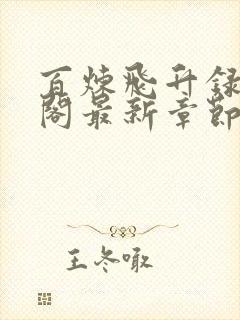 百炼飞升录
阁最新章节
王冬噉